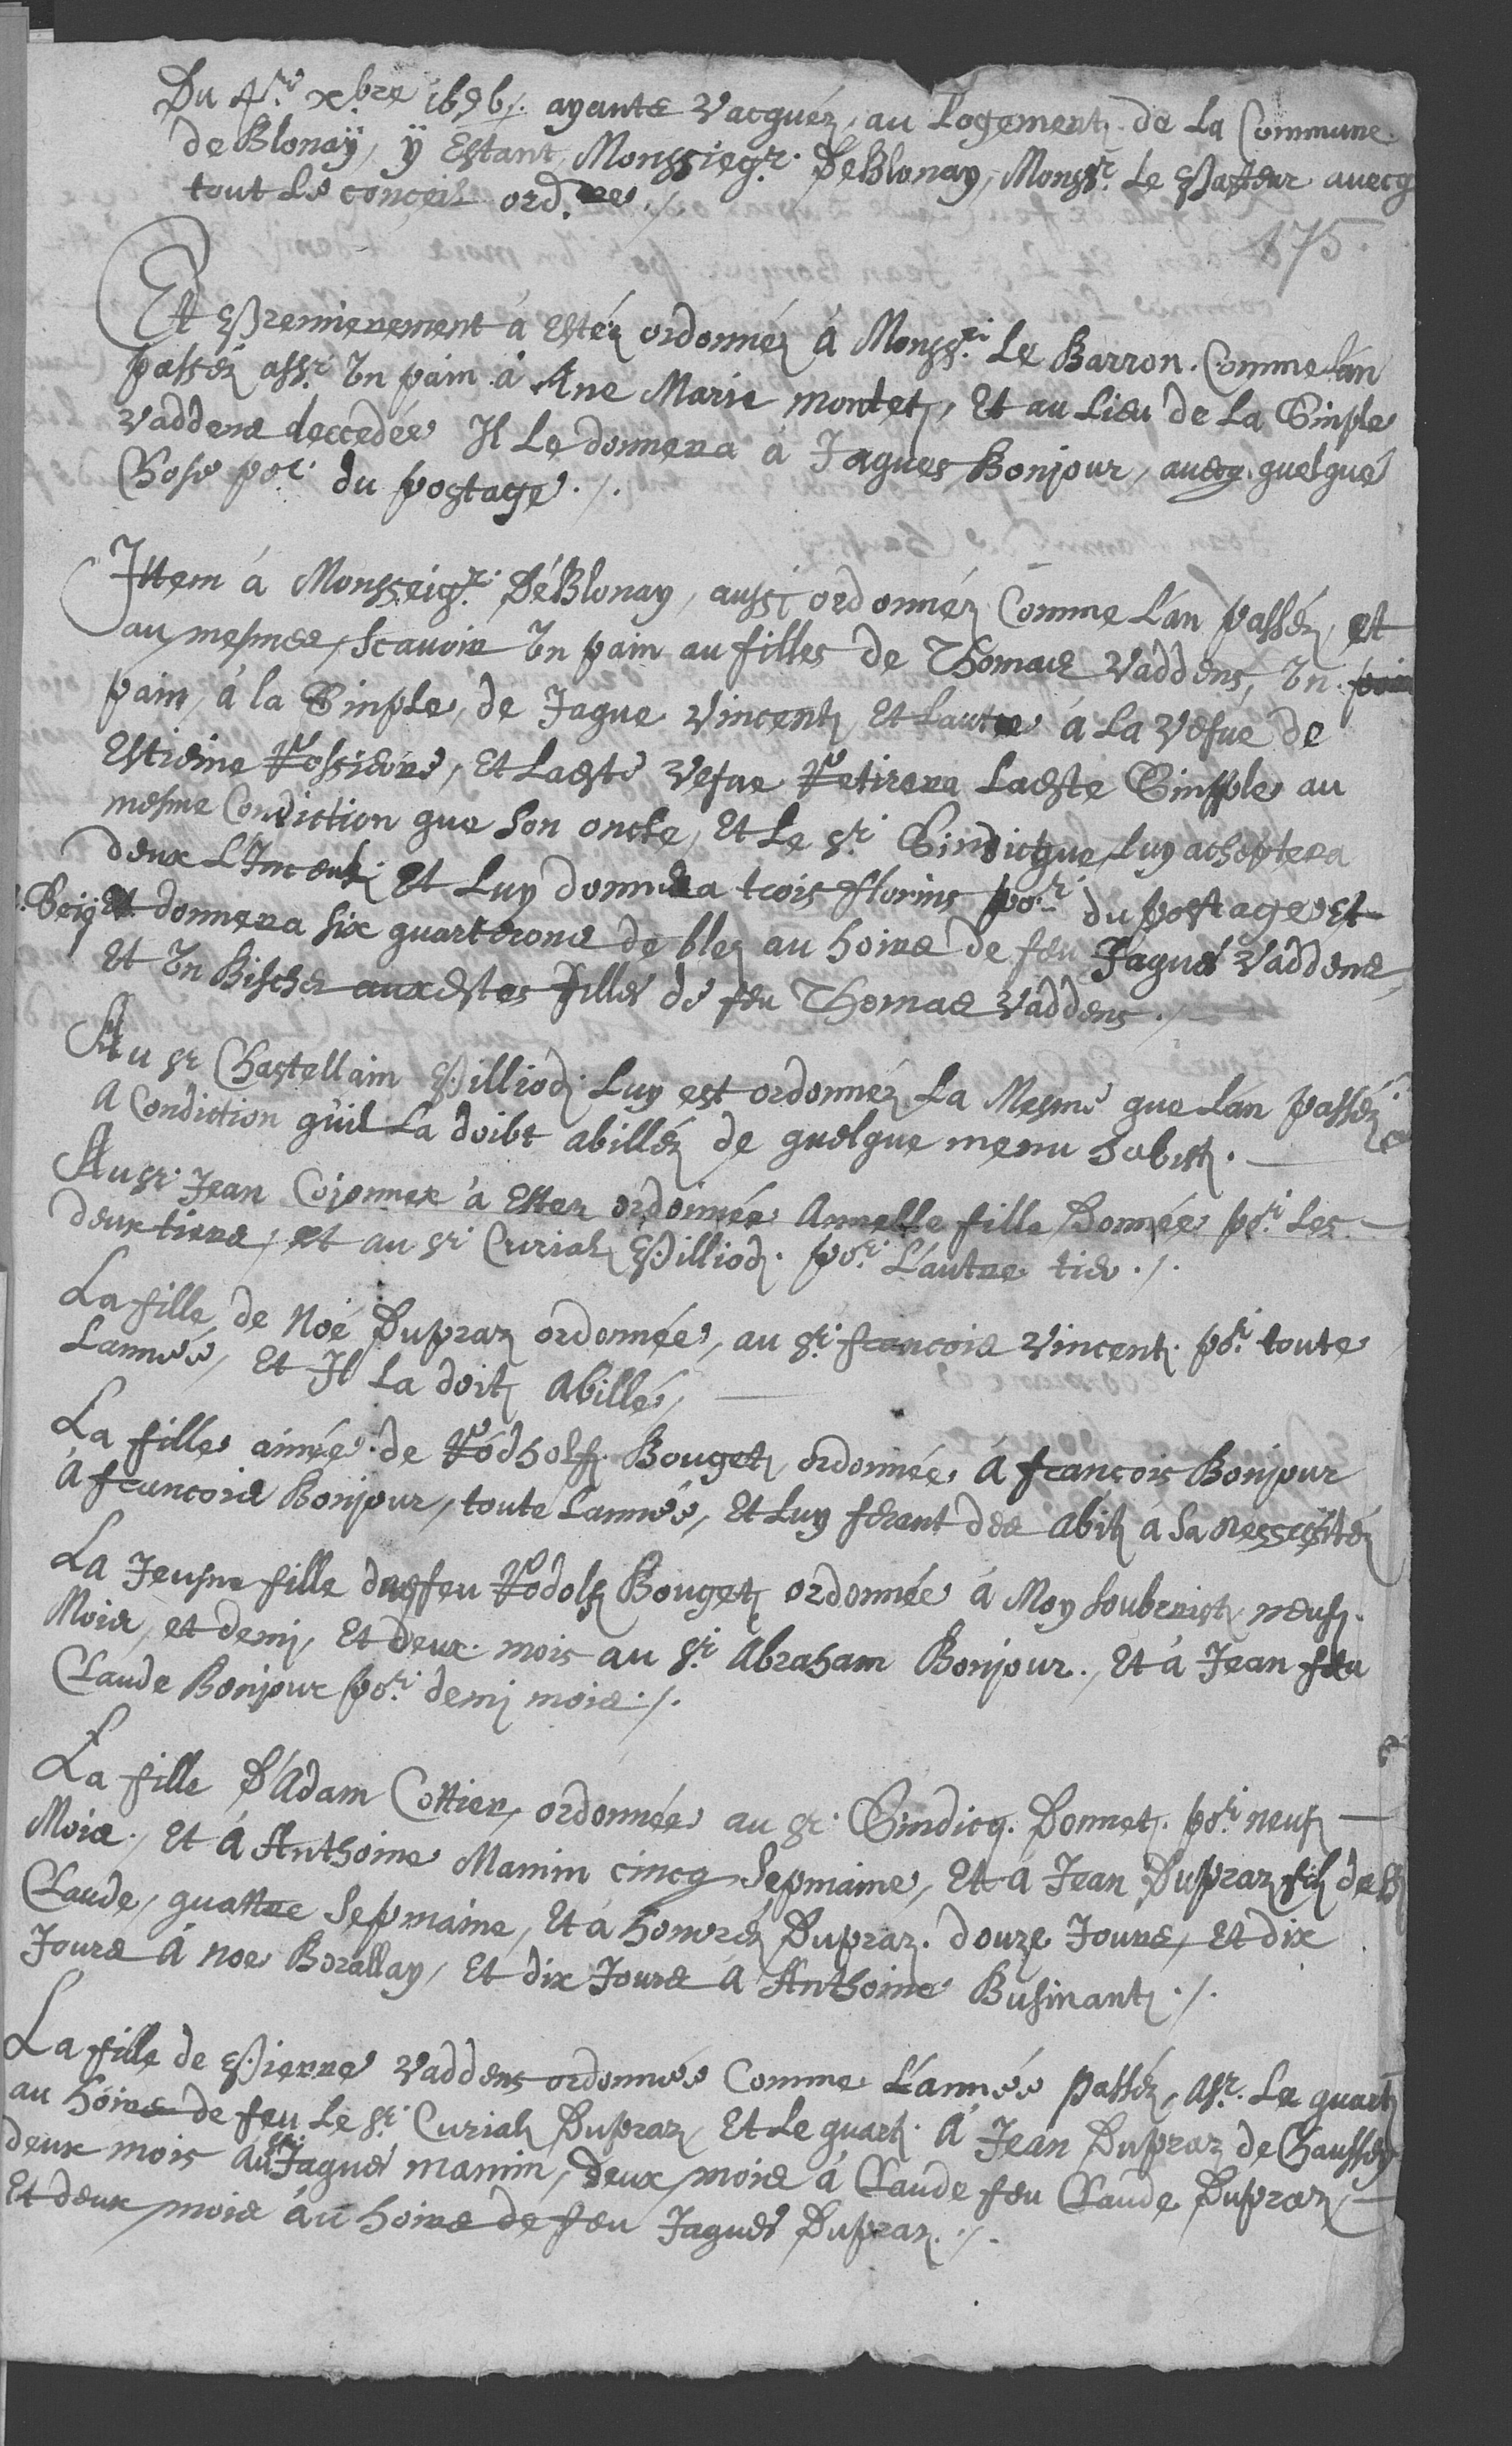 Du 4.me xbre 1696/. ayants vacquéz, au Logement de La Commune
de Blonaÿ, ÿ Estant Monssiegr. DeBlonay, Monssr. Le Pasteur avecq
tout Le conceil ord.re ./.
175.
Et Premierement à Estéz ordonnéz à Monssr. Le Barron. Comme Lan
passéz assr. Un pain à Ane Marie montet, Et au Lieu de La Simple
vaddens deccedée Il Le donnera à Jaques Bonjour, avecq quelque
Chose por. du postage ./.
Ittem á Monsseigr. DéBlonay, aussi ordonnéz Comme Lan passéz, et
au mesmes, scavoir Un pain au filles de Thomas Vaddens, Un
pain, á la Simple, de Jaque Vincent, Et Lautre á La Vefue de
Estienne Rossieore, Et Laeste Vefue Retirera Laeste Simple au
mesme Condiction que son oncle, Et Le sr. Sindicque Luy acheptera
deux Linceul; Et Luy donnera trois florins por. du postage Et
Seigr donnera six quarterons de blez au hoirs de feu Jaques Vaddens,
Et Un Bischet auxestes filles de feu Thomas Vaddens ./.
Au sr Chastellain Pilliod, Luy est ordonnéz La Mesme que Lan passéz
A Condiction quil La doibt abilléz de quelque menu habist.
Au sr. Jean Cojonnex à Estez ordonnée Annelle fille Donnée por. Les
deux tiers, et au sr Curial Pilliod. por. Lautre tier ./.
La fille de Noé Dupraz ordonnée, au sr. francois Vincent. por. toute
Lannée, Et Il La doit Abillé,
La fille ainée de Rodholf Bouget, ordonnée à francois Bonjour
à francois Bonjour, toute Lannée, Et Luy ferant des abit à sa nessesitéz
La Jeusne fille du feu Rodolf Bouget, ordonnée à Moy soubsrist, neuf
Mois, et demi, Et deux mois au sr. Abraham Bonjour., Et à Jean feu
Claude Bonjour por. demi mois ./.
La fille D'Adam Cottier, ordonnée au sr. Sindicq. Donnet. por. neuf
Mois., Et à Anthoine Mamin cincq Sepmaine, Et à Jean Dupraz fil de
Claude, quattre Sepmaine, Et à honoréz Dupraz. douze Jours, Et dix
Jours à Noe Borallay, Et dix Jours à Anthoine Businant ./.
La fille de Pierre Vaddens ordonnée Comme L'année passéz, assr. Le quart
au hoirs de feu Le sr. Curial Dupraz, Et Le quart. à Jean Dupraz de Chaussey
deux mois au sr Jaques mamin, Deux mois à Claude feu Claude Dupraz,
Et deux mois àu hoirs de feu Jaques Dupraz ./.